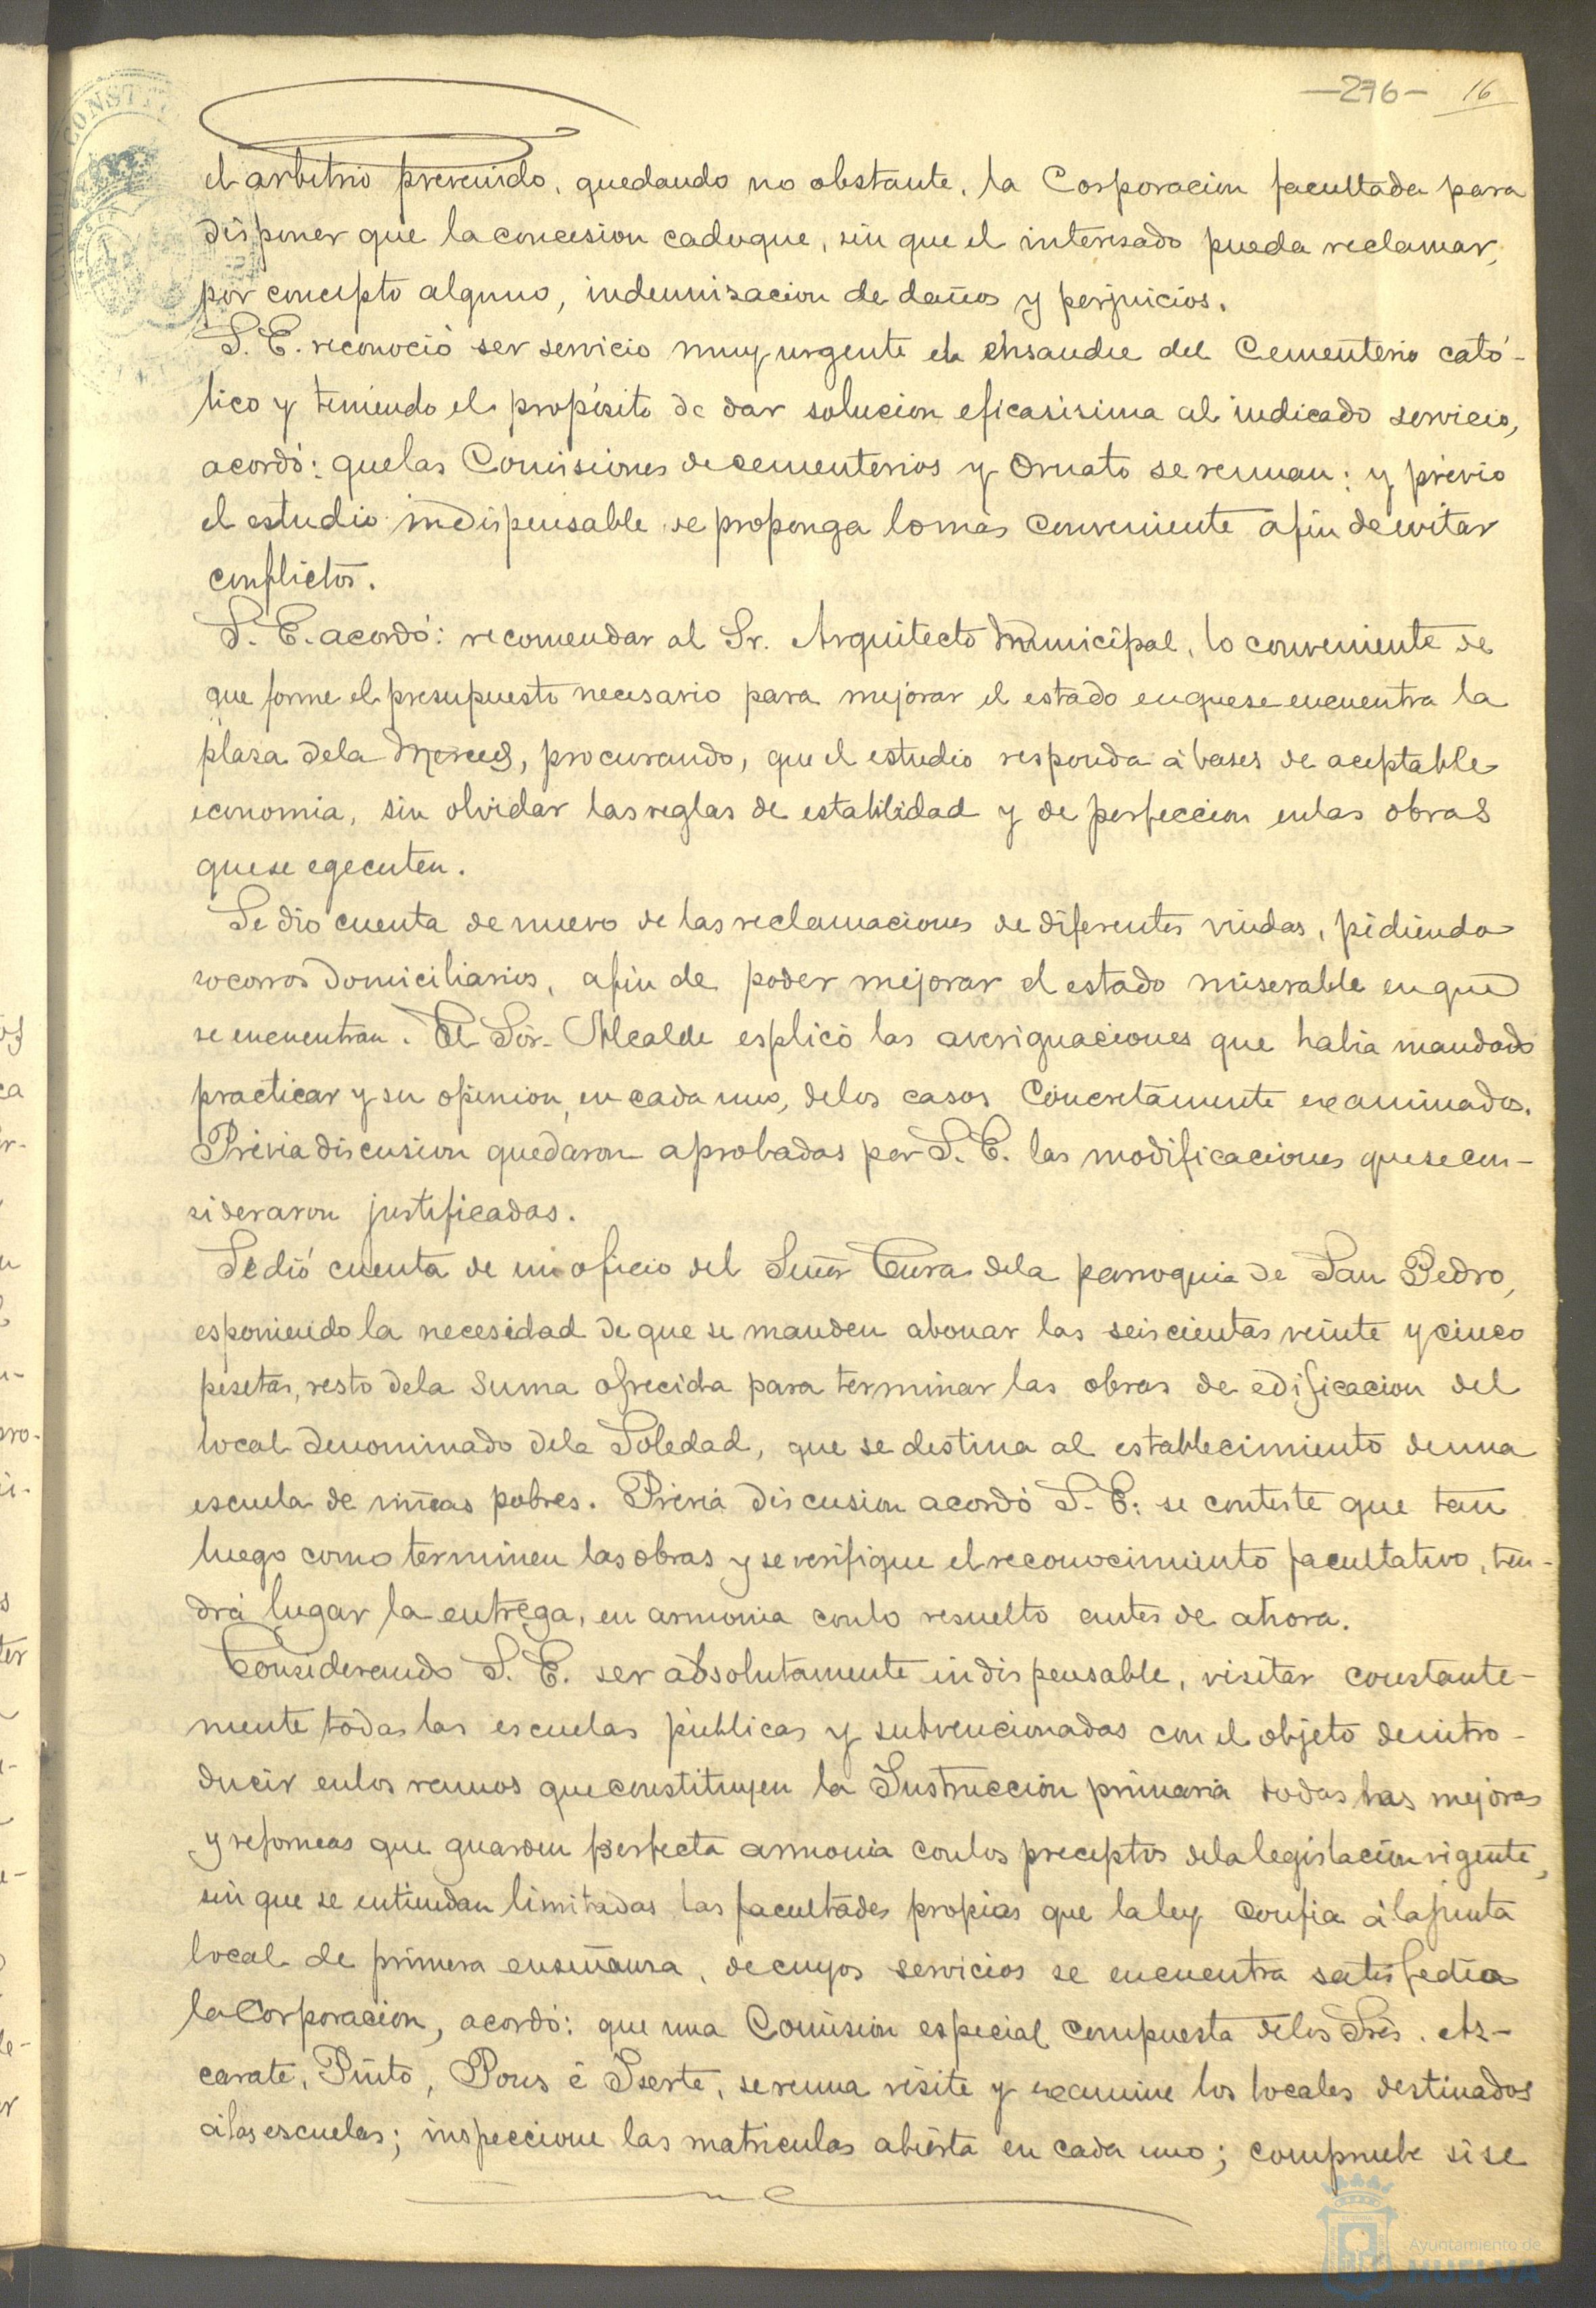 —276— 16
el arbitrio prevenido, quedando no obstante, la Corporacion facultada para
disponer que la concesion caduque, sin que el interesado pueda reclamar,
por concepto alguno, indemnisacion de daños y perjuicios.
S. E. reconoció ser servicio muy urgente el ensanche del Cementerio cató-
lico y teniendo el propósito de dar solucion eficasisima al indicado servicio,
acordó: que las Comisiones de cementerios y Ornato se reunan: y prévio
el estudio indispensable se proponga lo más conveniente afin de evitar
conflictos.
S. E. acordó: recomendar al Sr. Arquitecto Municipal, lo conveniente de
que forme el presupuesto necesario para mejorar el estado en que se encuentra la
plasa de la Merced, procurando, que el estudio responda á bases de aceptable
economia, sin olvidar las reglas de estabilidad y de perfeccion en las obras
que se egecuten.
Se dio cuenta de nuevo de las reclamaciones de diferentes viudas, pidiendo
socorros domiciliarios, afin de poder mejorar el estado miserable en que
se encuentran. El Sor. Alcalde esplicó las averiguaciones que habia mandado
practicar y su opinion, en cada uno, de los casos concretamente examinados.
Prévia discusion quedaron aprobadas por S. E. las modificaciones que se con-
sideraron justificadas.
Se dió cuenta de un oficio del Señor Cura de la parroquia de San Pedro,
esponiendo la necesidad de que se manden abonar las seiscientas veinte y cinco
pesetas, resto de la suma ofrecida para terminar las obras de edificacion del
local denominado de la Soledad, que se destina al establecimiento de una
escuela de niñas pobres. Prévia discusion acordó S. E: se conteste que tan
luego como terminen las obras y se verifique el reconocimiento facultativo, ten-
drá lugar la entrega, en armonia con lo resuelto antes de ahora.
Considerando S. E. ser absolutamente indispensable, visitar constante-
mente todas las escuelas públicas y subvencionadas con el objeto de intro-
ducir en los ramos que constituyen la Instruccion primaria todas las mejoras
y reformas que guarden perfecta armonia con los preceptos de la legislacion vigente,
sin que se entiendan limitadas las facultades propias que la ley confia á la junta
local de primera enseñansa, de cuyos servicios se encuentra satisfecha
la Corporacion, acordó: que una Comision especial compuesta de los Sres. As-
carate, Pinto, Pous é Iserte, se reuna visite y examine los locales destinados
á las escuelas; inspeccione las matriculas abierta en cada uno; compruebe si se
Ayuntamiento de
HUELVA